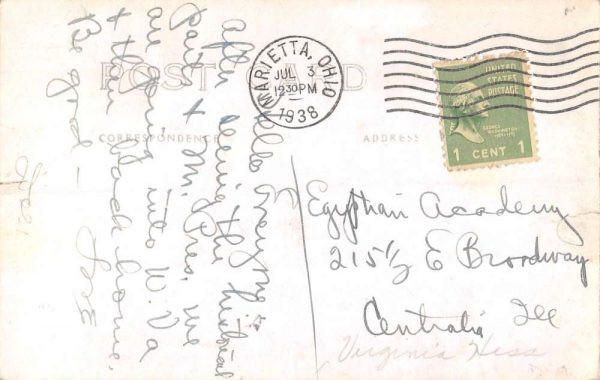 POST CARD
CORRESPONDENCE
ADDRESS
MARIETTA, OHIO
JUL 3
12 30 PM
1938
UNITED
STATES
POSTAGE
GEORGE
WASHINGTON
1 CENT 1
Hello everyone
after seeing the historical
parts & Mr. Pres. we
are going into W. Va
& then back home.
Be good - Love
Egyptian Academy
215½ E Broadway
Centralia Ill
Virginia Hess